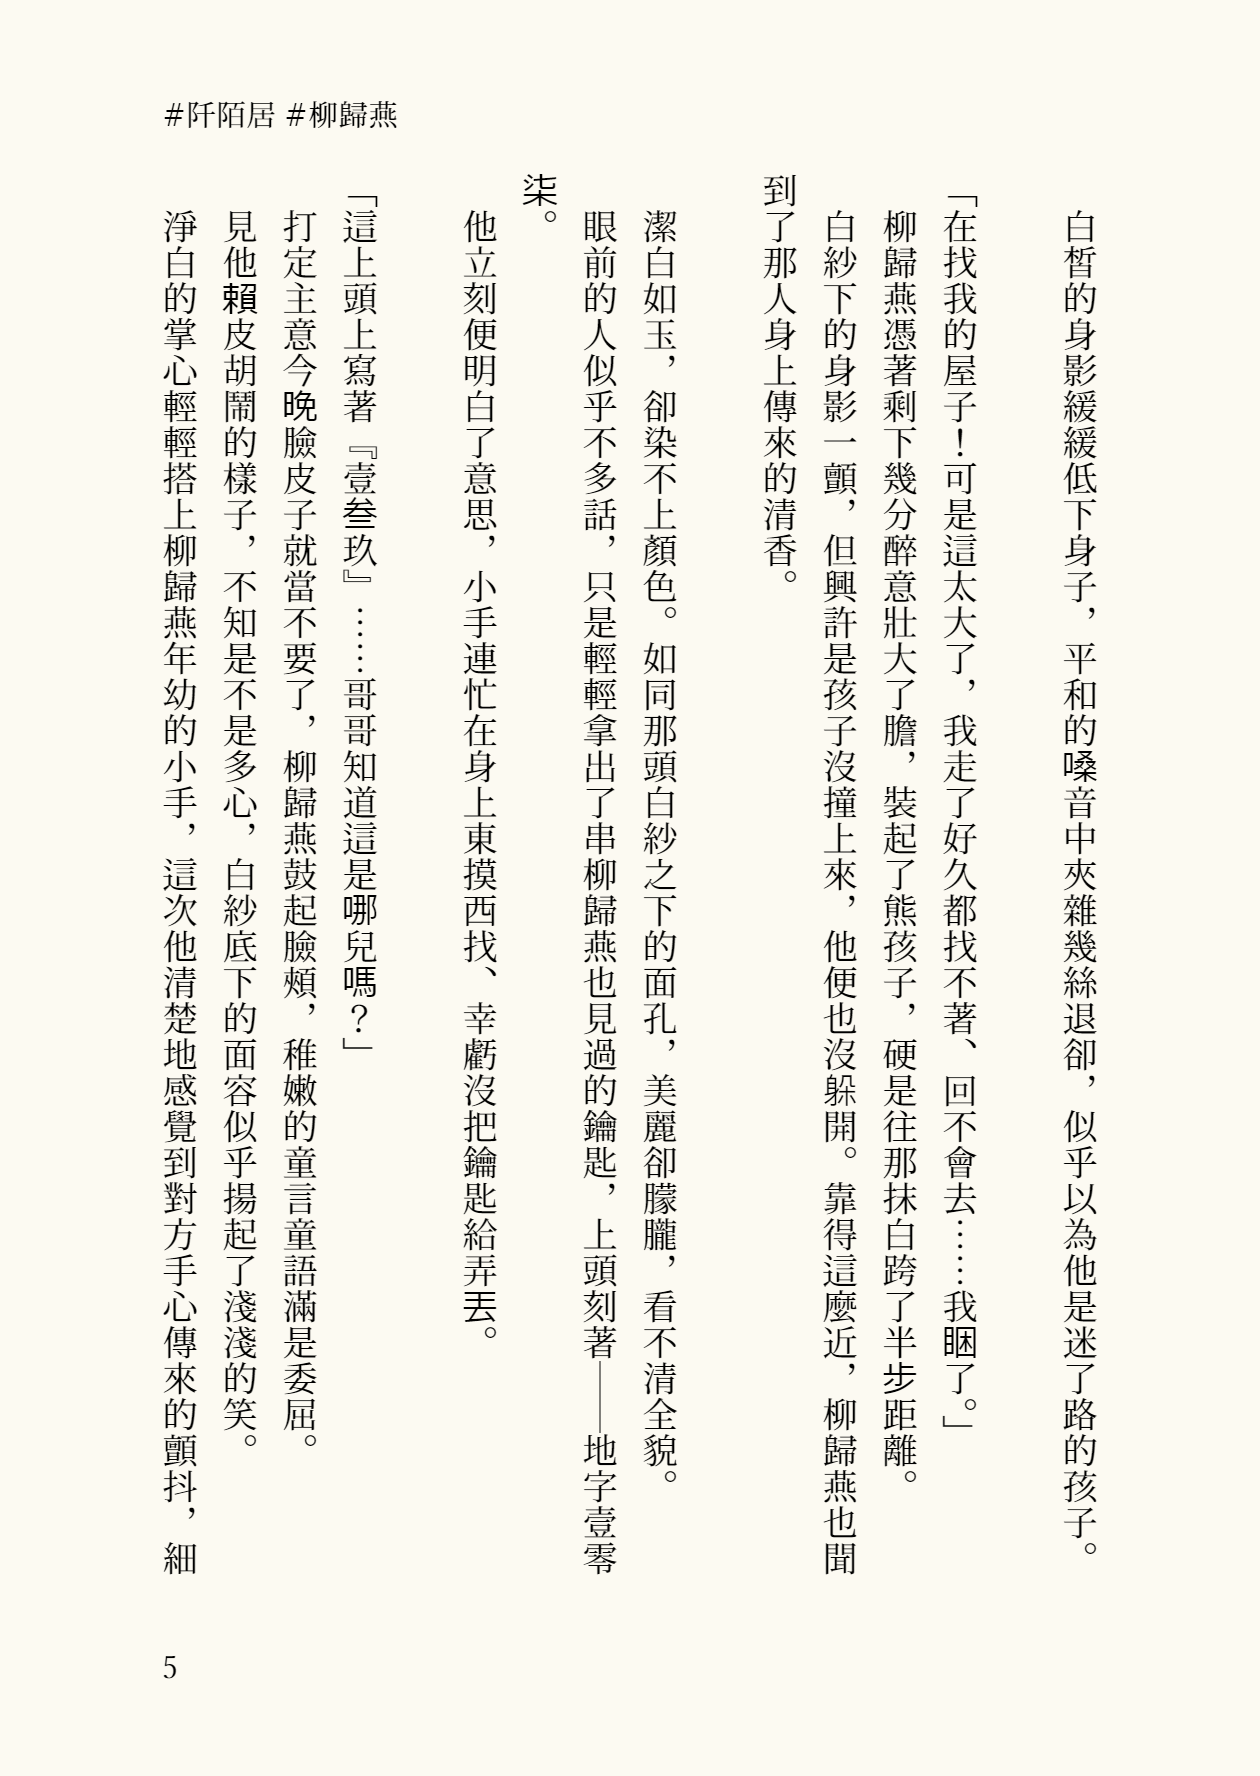 #阡陌居 #柳歸燕
白皙的身影緩緩低下身子，平和的嗓音中夾雜幾絲退卻，似乎以為他是迷了路的孩子。
「在找我的屋子！可是這太大了，我走了好久都找不著、回不會去⋯⋯我睏了。」
柳歸燕憑著剩下幾分醉意壯大了膽，裝起了熊孩子，硬是往那抹白跨了半步距離。
白紗下的身影一顫，但興許是孩子沒撞上來，他便也沒躲開。靠得這麼近，柳歸燕也聞
到了那人身上傳來的清香。
潔白如玉，卻染不上顏色。如同那頭白紗之下的面孔，美麗卻朦朧，看不清全貌。
眼前的人似乎不多話，只是輕輕拿出了串柳歸燕也見過的鑰匙，上頭刻著——地字壹零
柒。
他立刻便明白了意思，小手連忙在身上東摸西找、幸虧沒把鑰匙給弄丟。
「這上頭上寫著『壹叁玖』⋯⋯哥哥知道這是哪兒嗎？」
打定主意今晚臉皮子就當不要了，柳歸燕鼓起臉頰，稚嫩的童言童語滿是委屈。
見他賴皮胡鬧的樣子，不知是不是多心，白紗底下的面容似乎揚起了淺淺的笑。
淨白的掌心輕輕搭上柳歸燕年幼的小手，這次他清楚地感覺到對方手心傳來的顫抖，細
5